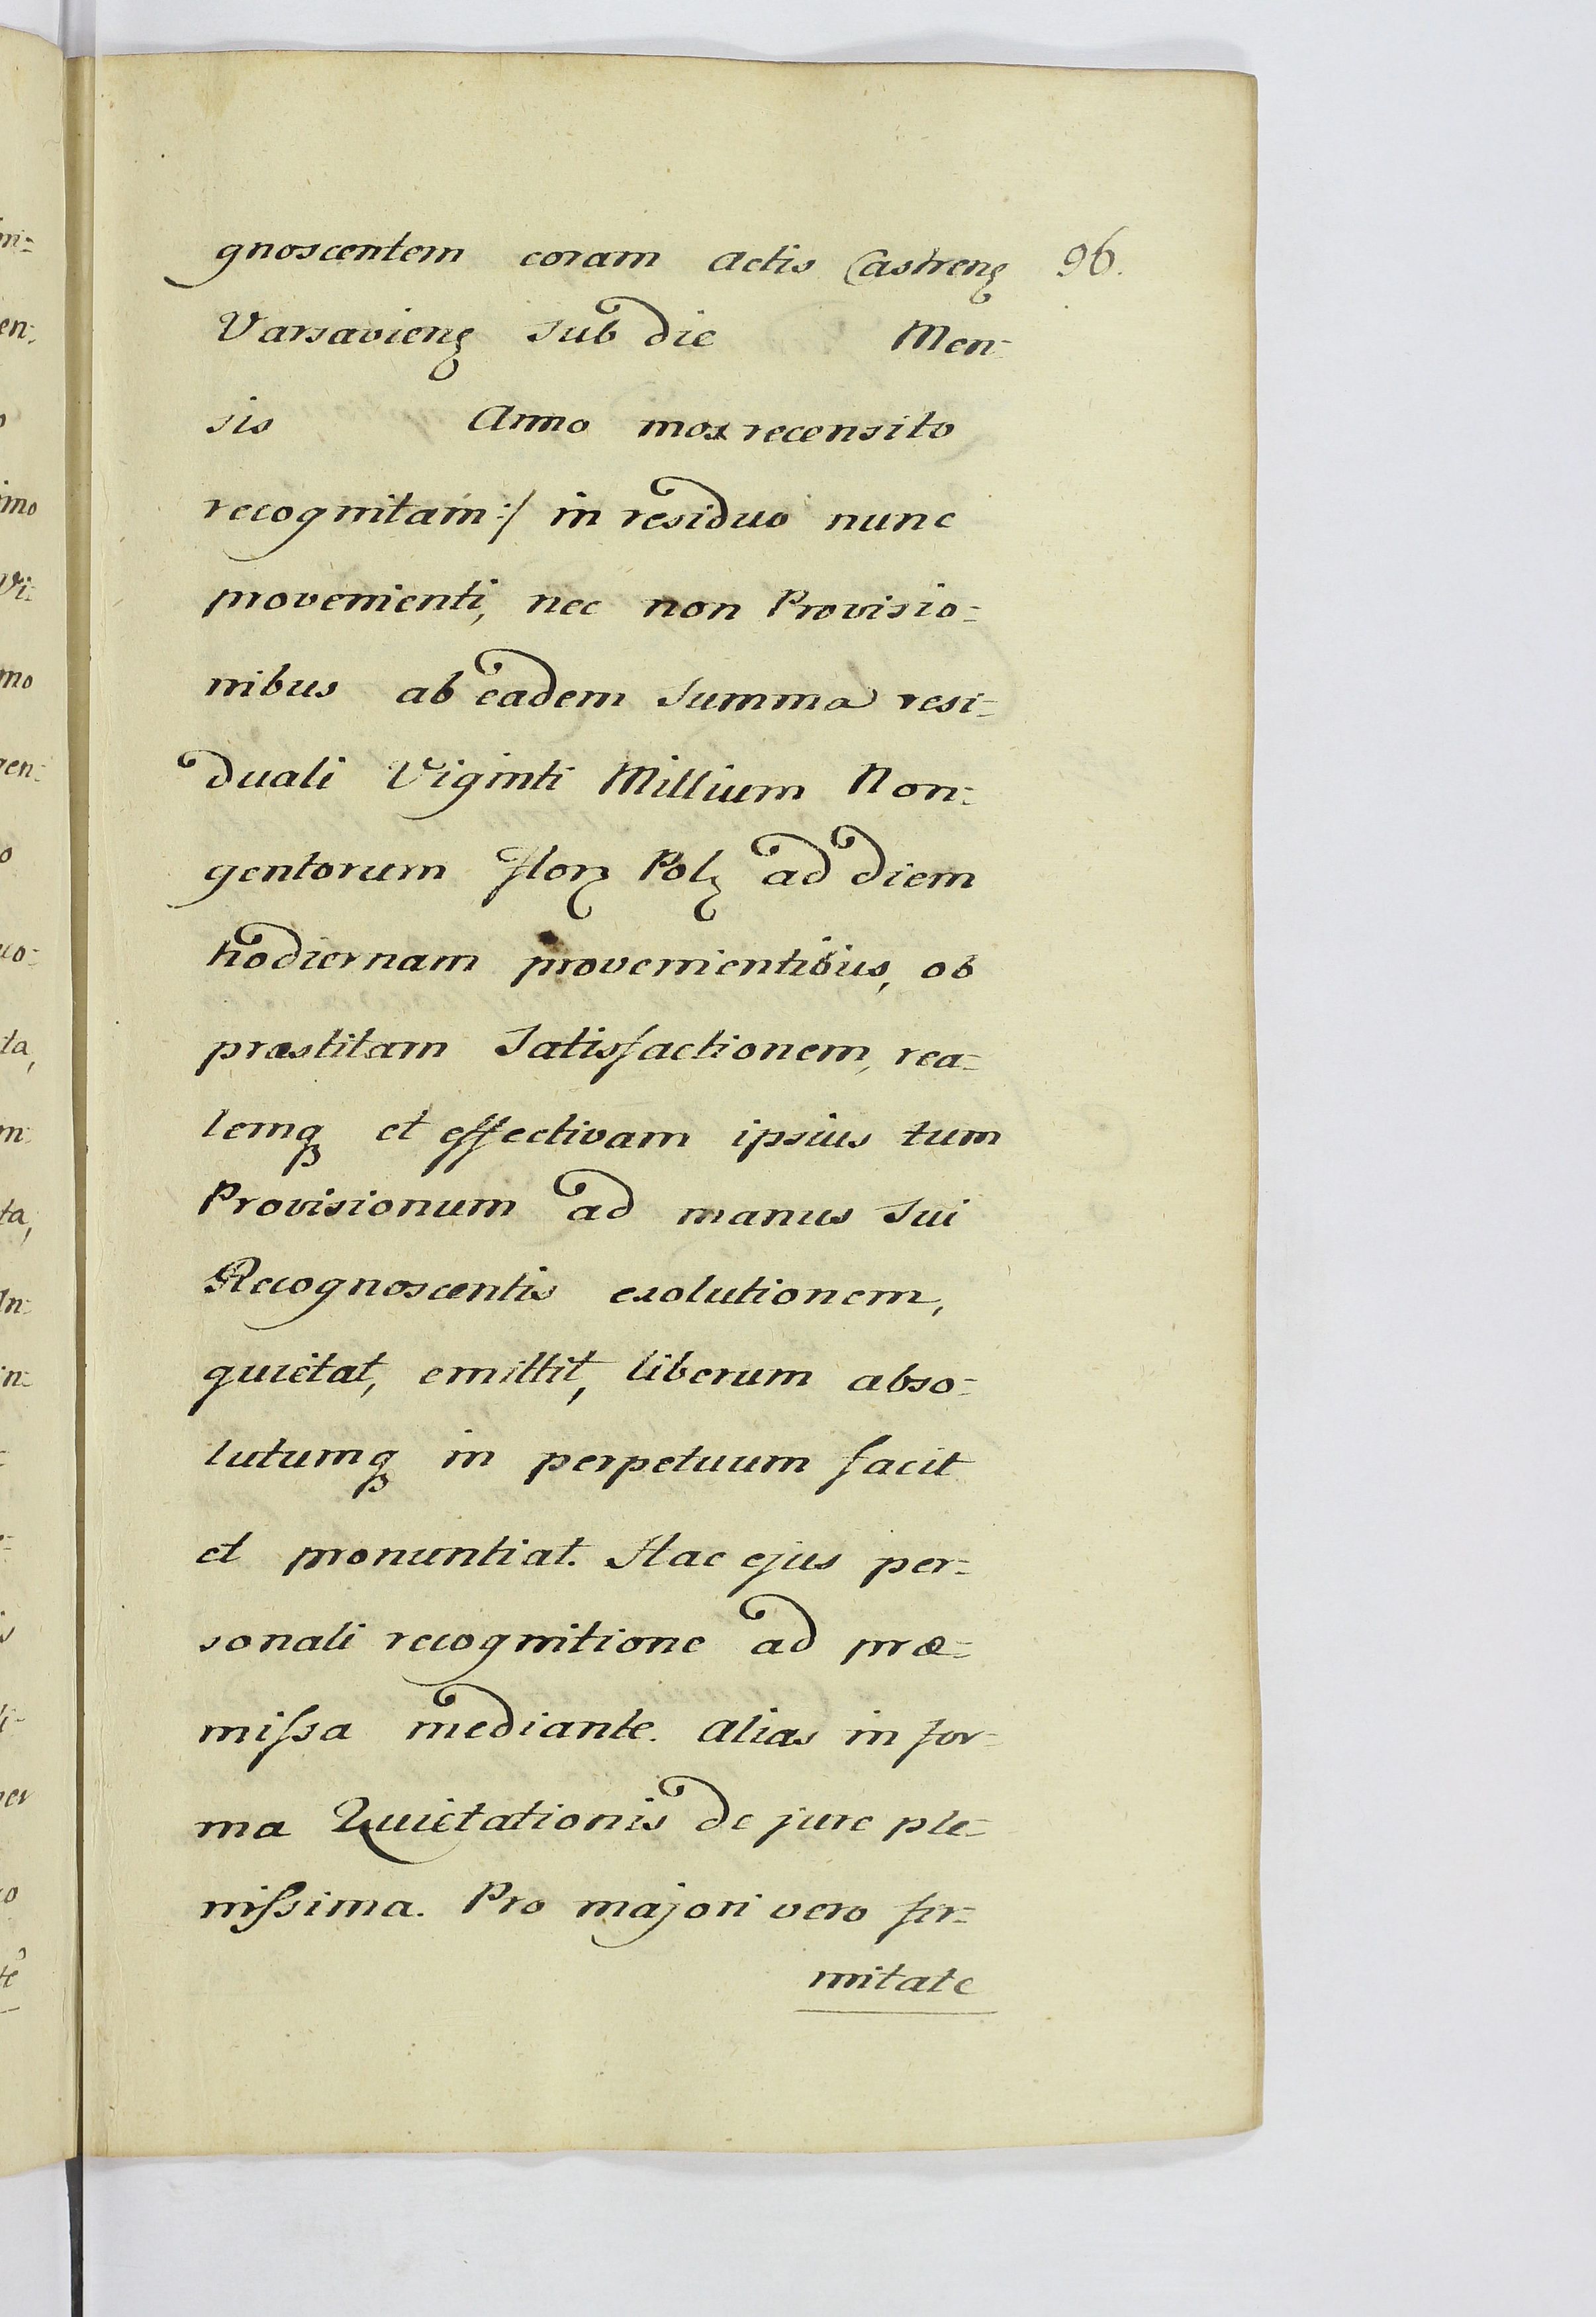 gnoscentem coram actis Castrenȩ 96.
Varsavienȩ sub die Men=
sis Anno mox recensito
recognitam:/ in residuo nunc
provenienti, nec non Provisio=
nibus ab eadem Summa resi=
duali Viginti Millium Non=
gentorum flor Pol ad diem
hodiernam provenientibus, ob
præstitam Satisfactionem, rea=
lemq et effectivam ipsius tum
Provisionum ad manus Sui
Recognoscentis exolutionem,
quietat, emittit, liberum abso=
lutumq in perpetuum facit
et pronuntiat. Hac ejus per=
sonali recognitione ad præ=
missa mediante. Alias in for=
ma Quietationis de jure ple=
nissima. Pro majori vero fir=
mitate